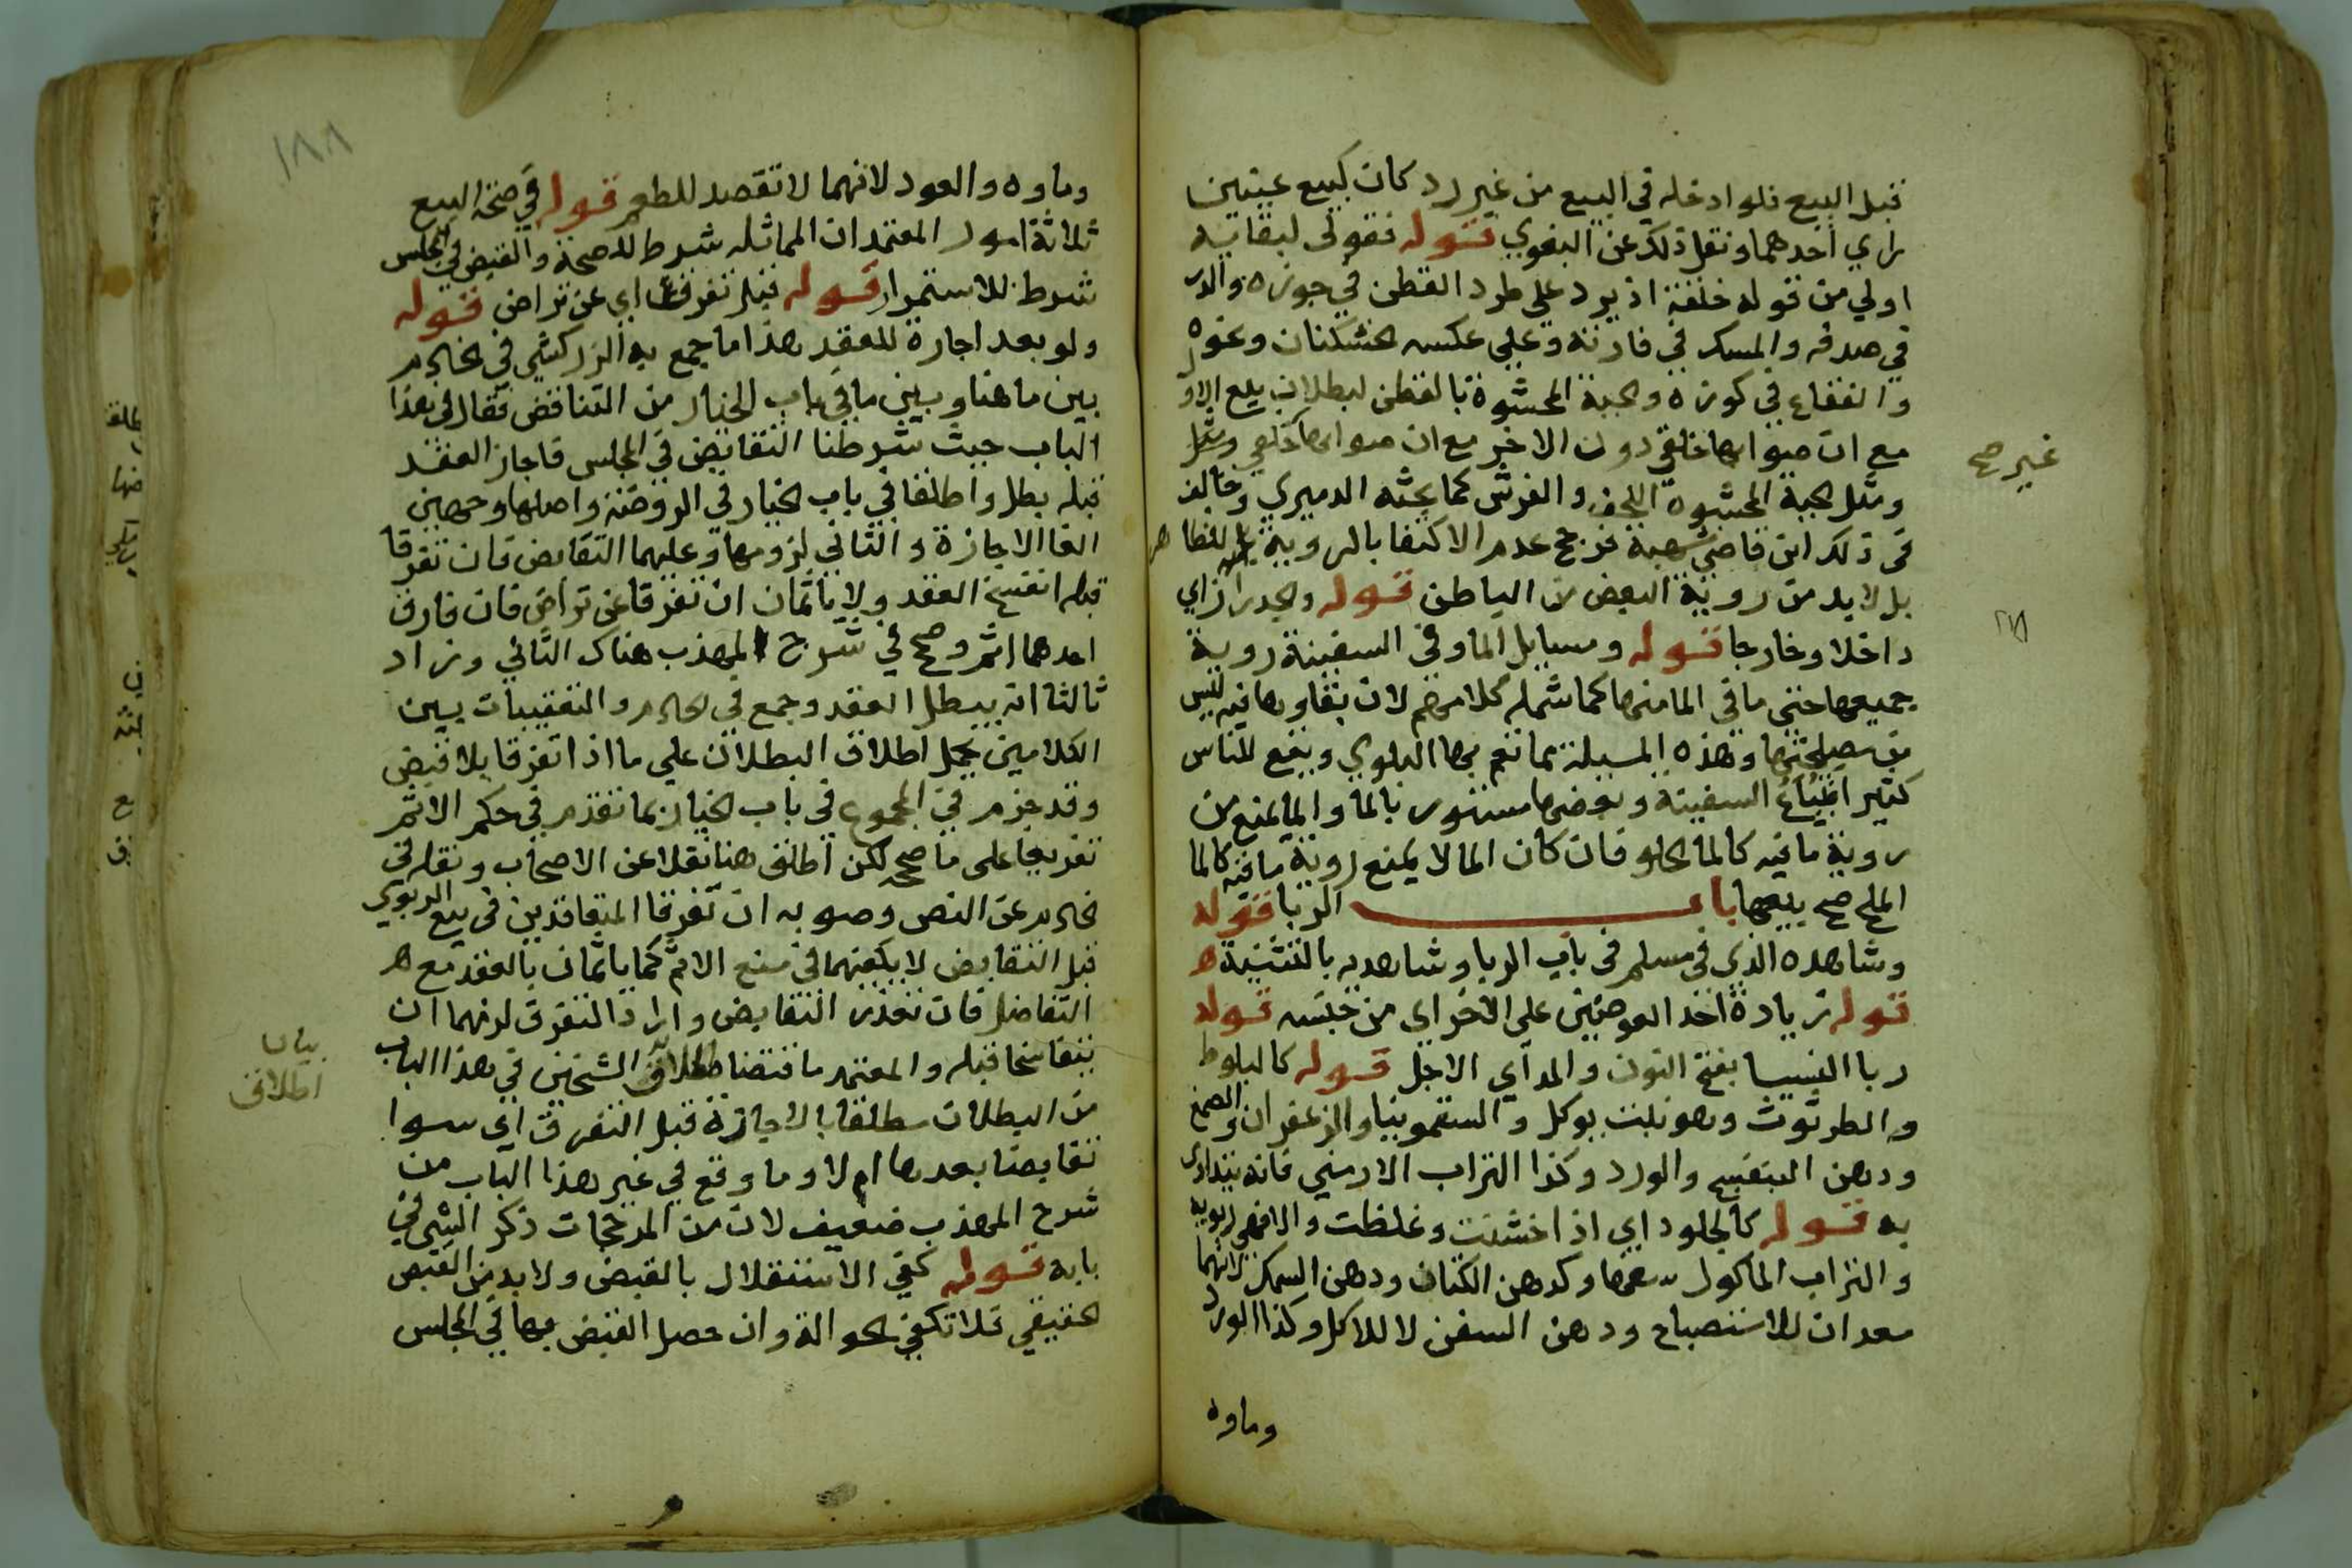 قبل البيع فلو ادخله في البيع من غير رد كان كبيع عينين
راي احدهما ونقل ذلك عن البغوي قوله فقولي لبقايه
اولي من قوله خلقة اذ يرد علي طرد القطن في جوزه والدر
في صدفه والمسك في فارته وعلي عكسه الخشكنان ونحوه
والفقاع في كوزه والجبة المحشوة بالقطن لبطلان بيع الاول
مع ان صوانها خلقي دون الاخر مع ان صوانها خلقي ومثل
ومثل الجبة المحشوة اللحف والفرش كما بحثه الدميري وخالف
في ذلك ابن قاضي شهبة فرجح عدم الاكتفا بالروية للظاهر
بل لابد من روية البعض من الباطن قوله والجدران اي
داخلا وخارجا قوله ومسايل الما وفي السفينة روية
جميعها حتى ما في الما منها كما شمله كلامهم لان بقاوها فيه ليس
من مصلحتها وهذه المسيلة مما تعم بها البلوي ويقع للناس
كثيرا تباع السفينة وبعضها مستور بالما والما يمنع من
روية ما فيه كالما الحلو فان كان الما لا يمنع روية ما فيه كالما
الملح صح بيعها باب الربا قوله
وشاهده الذي في مسلم في باب الربا وشاهديه بالتثنية ه
قوله زيادة احد العوضين على الاخر اي من جنسه قوله
ربا النسيا بفتح النون والمد اي الاجل قوله كالبلوط
والطرثوث وهو نبت يوكل والسقمونيا والزعفران والصمغ
ودهن البنفسج والورد وكذا التراب الارمني فانه يتداوى
به قوله كالجلود اي اذا خشنت وغلظت والا فهي ربوية
والتراب الماكول سفها وكدهن الكتان ودهن السمك لانهما
معدان للاستصباح ودهن السفن لا للاكل وكذا الورد
وماوه
غير صح
١٨٨
وماوه والعود لانهما لا تقصد للطعم قوله في صحة البيع
ثلاثة امور المعتمد ان المماثله شرط للصحة والقبض في المجلس
شرط للاستمرار قوله قبل تفرقهما اي عن تراض قوله
ولو بعد اجازة للعقد هذا ما جمع به الزركشي في الخادم
بين ما هنا وبين ما في باب الخيار من التناقض فقال في هذا
الباب حيث شرطنا التقابض في المجلس فاجاز العقد
قبله بطل واطلقا في باب الخيار في الروضة واصلها وجهين
الغا الاجازة والثاني لزومها وعليهما التقابض فان تفرقا
قبله انفسخ العقد ولا ياثمان ان تفرقا عن تراض فان فارق
احدهما اثم وصحح في شرح المهذب هناك الثاني وزاد
ثالثا انه يبطل العقد وجمع في الخادم والتعقيبات بين
الكلامين بحمل اطلاق البطلان علي ما اذا تفرقا بلا قبض
وقد جزم في المجموع في باب الخيار بما تقدم في حكم الاثم
تفريعا على ما صححه لكن اطلق هنا نقلا عن الاصحاب ونقله في
الخادم عن النص وصوبه ان تفرقا المتعاقدين في بيع الربوي
قبل التقابض لا يكفيهما في منع الاثم كما ياثمان بالعقد مع ه
التفاضل فان تعذر التقابض واراد التفرق لزمهما ان
يتفاسخا قبله والمعتمد ما قتضاه اطلاق الشيخين في هذا الباب
من البطلان مطلقا بالاجازة قبل التفرق اي سوا
تقابضا بعدها ام لا وما وقع في غير هذا الباب من
شرح المهذب ضعيف لان من المرجحات ذكر الشي في
بابه قوله كفي الاستقلال بالقبض ولابد من القبض
الحقيقي فلا تكفي الحوالة وان حصل القبض بها في المجلس
بيان
اطلاق